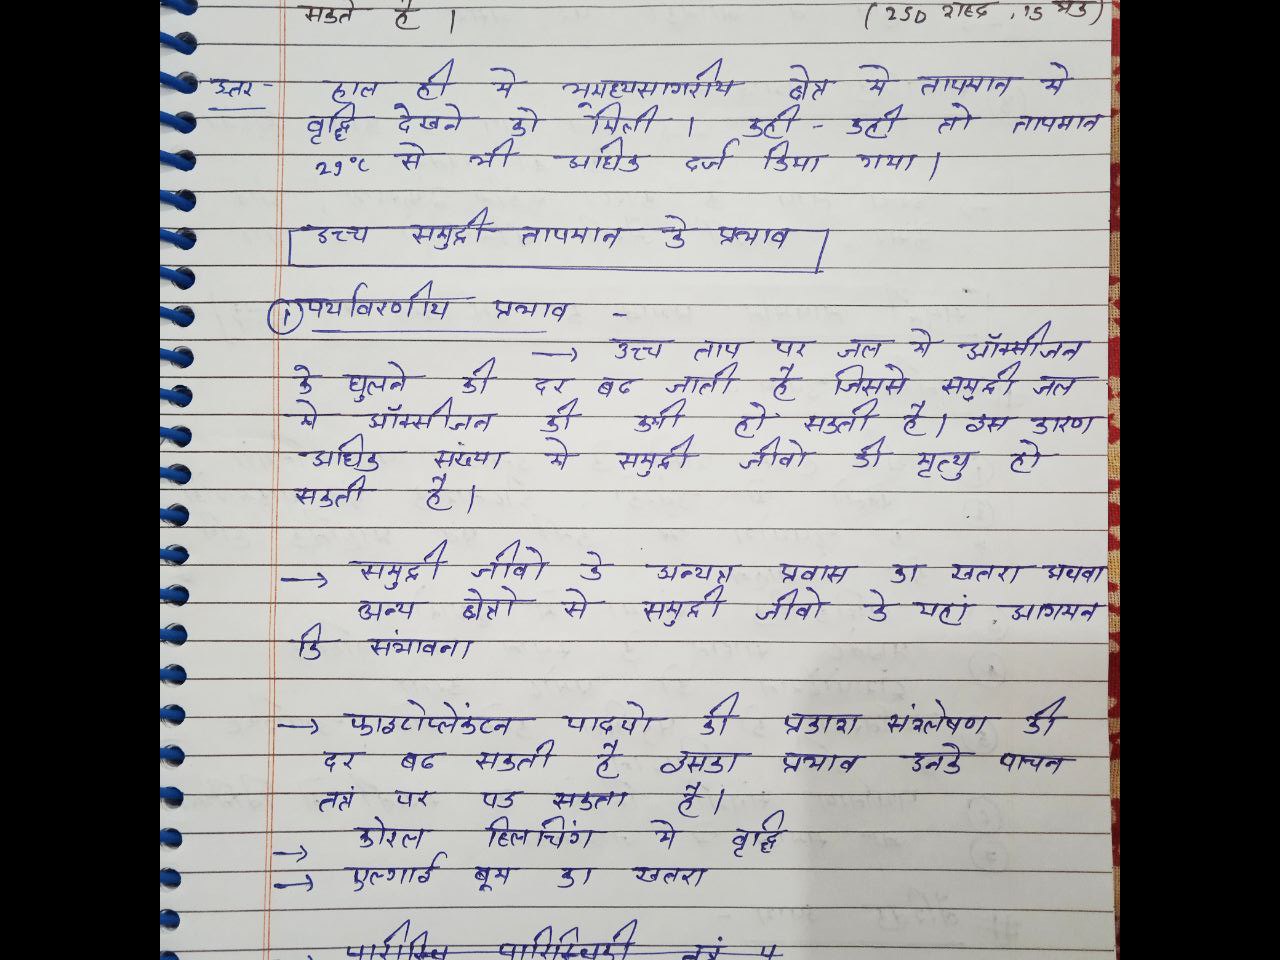 सकते है । (250 शब्द, 15 अंक)
उत्तर- हाल ही मे भूमध्यसागरीय क्षेत्र मे तापमान मे
वृद्धि देखने को मिली । कही - कही तो तापमान
29°C से भी अधिक दर्ज किया गया ।
उच्च समुद्री तापमान के प्रभाव
① पर्यावरणीय प्रभाव -
→ उच्च ताप पर जल मे ऑक्सीजन
के घुलने की दर बढ जाती है जिससे समुद्री जल
मे ऑक्सीजन की कमी हो सकती है। इस कारण
अधिक संख्या मे समुद्री जीवो की मृत्यु हो
सकती है ।
→ समुद्री जीवो के अन्यत्र प्रवास का खतरा अथवा
अन्य क्षेत्रो से समुद्री जीवो के यहां आगमन
कि संभावना
→ फाइटोप्लेंकटन पादपो की प्रकाश संश्लेषण की
दर बढ सकती है इसका प्रभाव इनके पाचन
तत्रं पर पड सकता है।
→ कोरल ब्लिचिंग मे वृद्धि
→ एल्गाई बूम का खतरा
पारिस्थिकी तत्रं